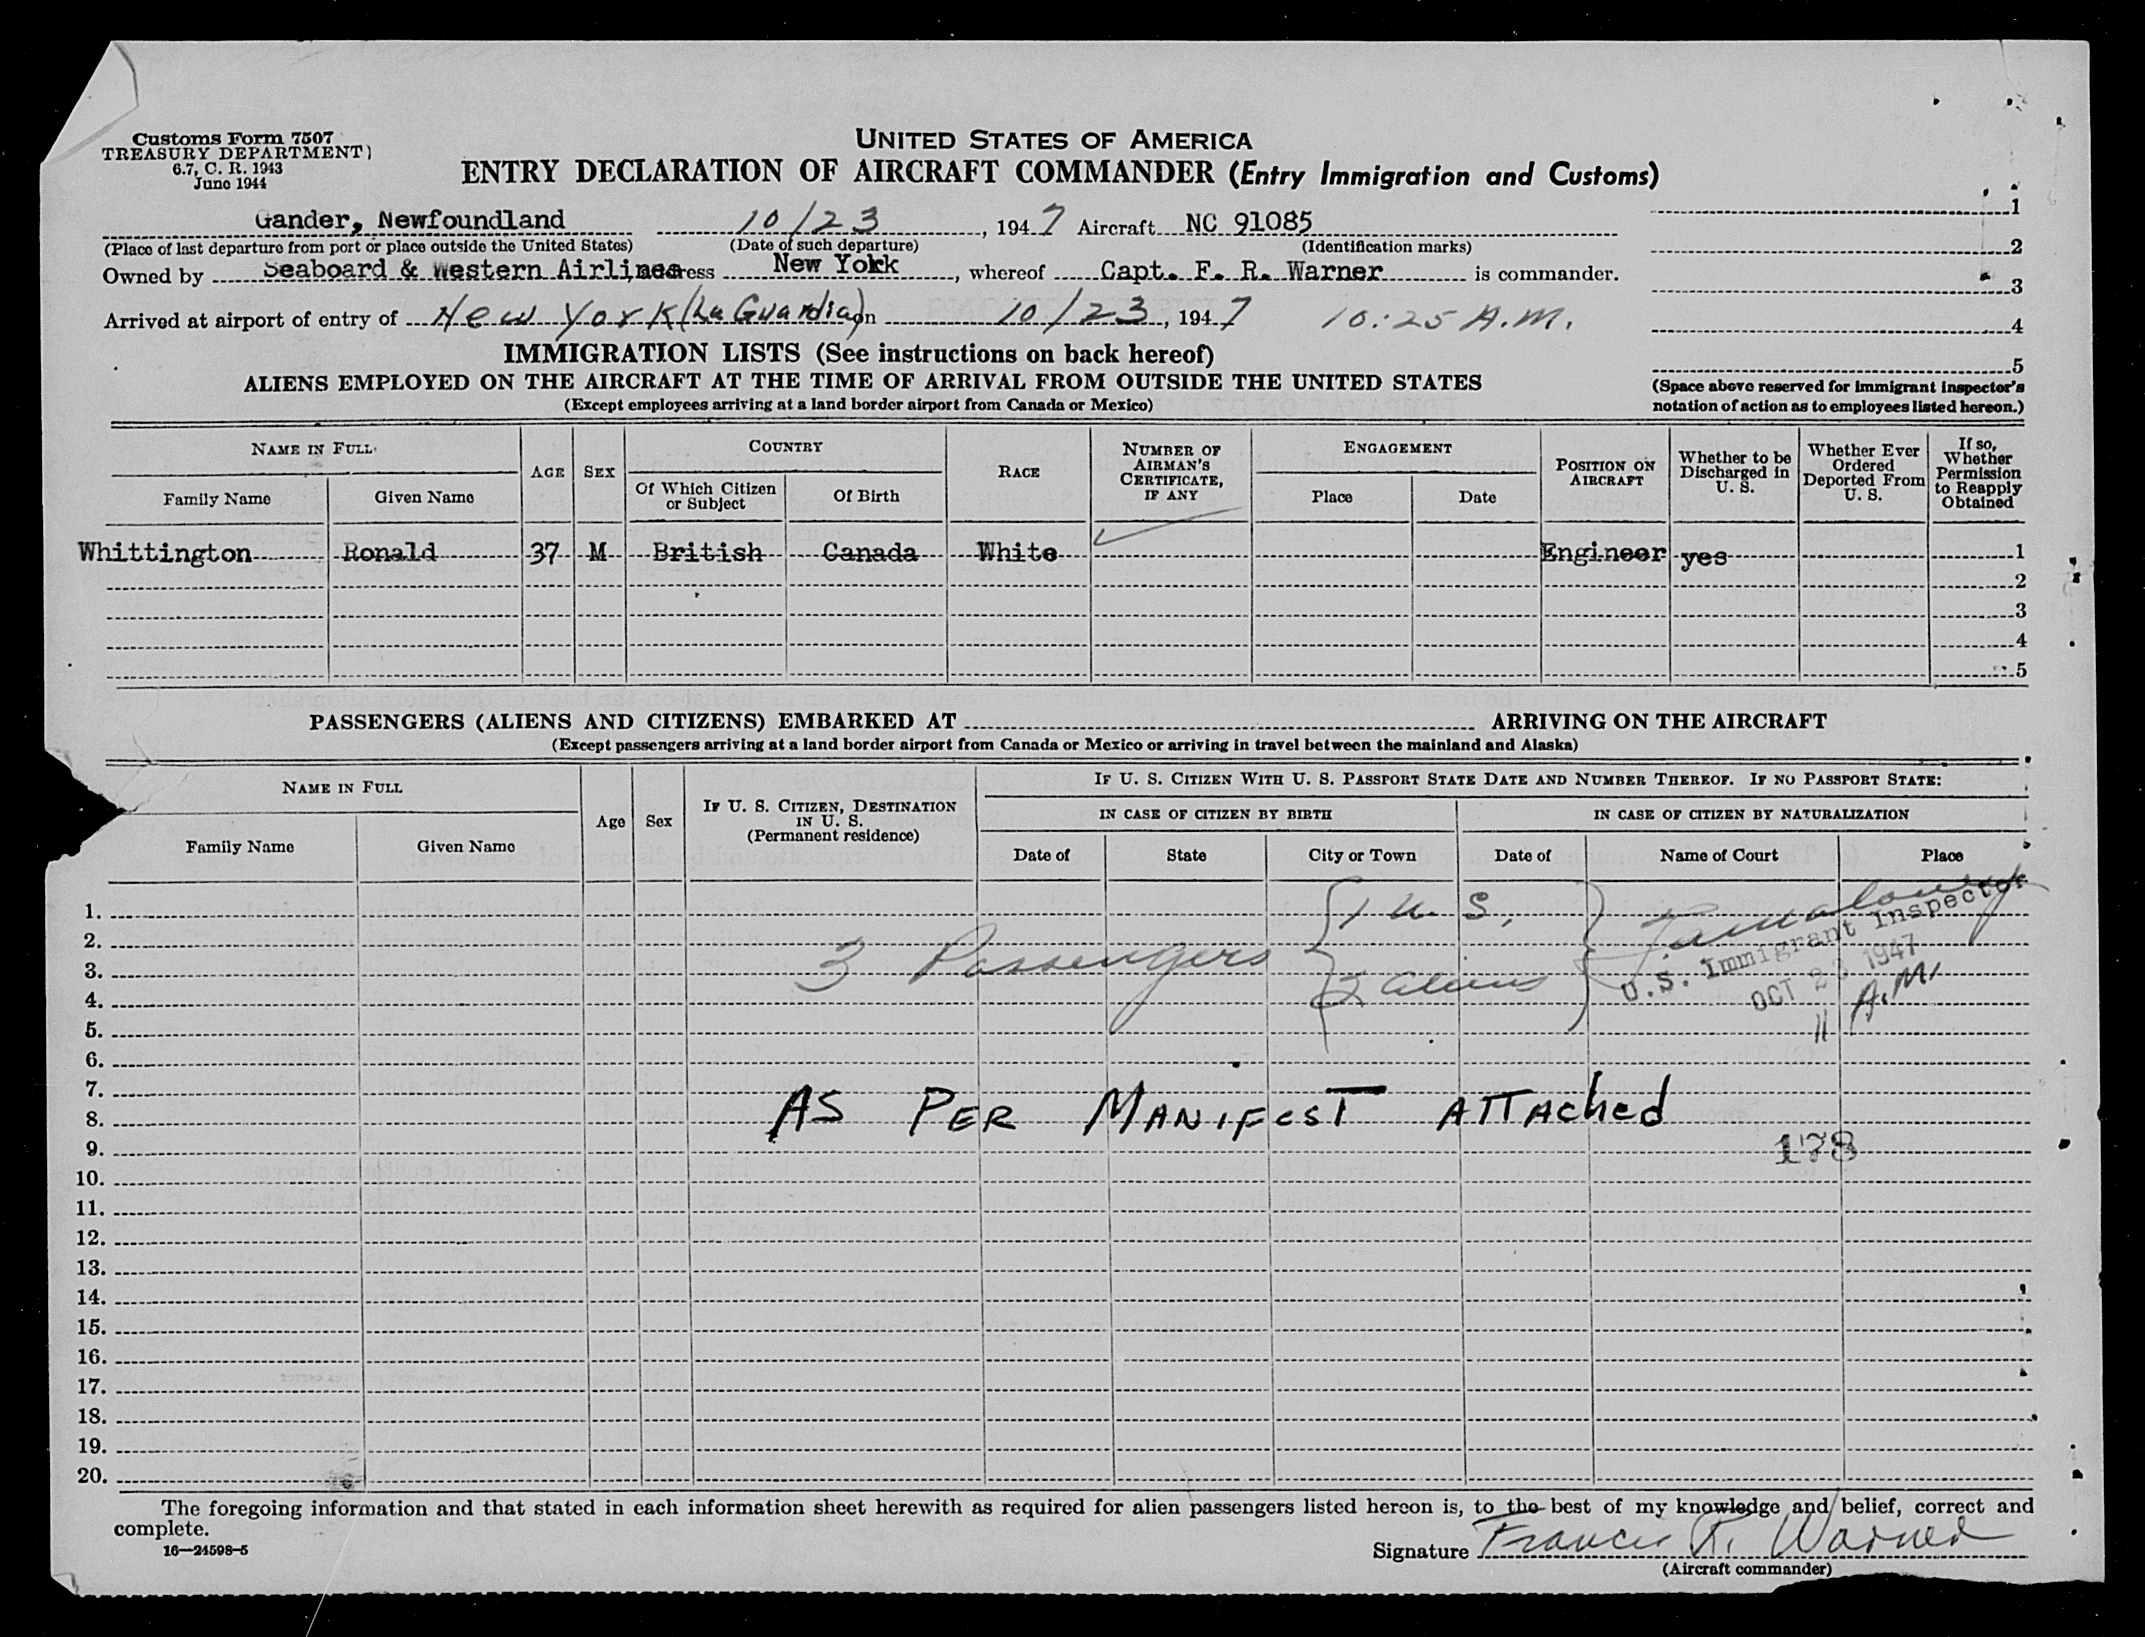 Customs Form 7507
TREASURY DEPARTMENT)
6.7, C. R. 1943
June 1944
UNITED STATES OF AMERICA
ENTRY DECLARATION OF AIRCRAFT COMMANDER (Entry Immigration and Customs)
Gander, Newfoundland 10/23, 1947 Aircraft NC 91085
(Place of last departure from port or place outside the United States) (Date of such departure) (Identification marks)
Owned by Seaboard & Western Airlines address New York, whereof Capt. F. R. Warner is commander.
Arrived at airport of entry of New York (La Guardia) on 10/23, 1947 10:25 A.M.
1
2
3
4
5
(Space above reserved for immigrant inspector's
notation of action as to employees listed hereon.)
IMMIGRATION LISTS (See instructions on back hereof)
ALIENS EMPLOYED ON THE AIRCRAFT AT THE TIME OF ARRIVAL FROM OUTSIDE THE UNITED STATES
(Except employees arriving at a land border airport from Canada or Mexico)
NAME IN FULL
Family Name Given Name
AGE
SEX
COUNTRY
Of Which Citizen
or Subject
Of Birth
RACE
NUMBER OF
AIRMAN'S
CERTIFICATE,
IF ANY
ENGAGEMENT
Place Date
POSITION ON
AIRCRAFT
Whether to be
Discharged in
U. S.
Whether Ever
Ordered
Deported From
U. S.
If so,
Whether
Permission
to Reapply
Obtained
Whittington Ronald 37 M British Canada White Engineer yes 1
2
3
4
5
PASSENGERS (ALIENS AND CITIZENS) EMBARKED AT ARRIVING ON THE AIRCRAFT
(Except passengers arriving at a land border airport from Canada or Mexico or arriving in travel between the mainland and Alaska)
NAME IN FULL
Family Name Given Name
Age
Sex
IF U. S. CITIZEN, DESTINATION
IN U. S.
(Permanent residence)
IF U. S. CITIZEN WITH U. S. PASSPORT STATE DATE AND NUMBER THEREOF. IF NO PASSPORT STATE:
IN CASE OF CITIZEN BY BIRTH IN CASE OF CITIZEN BY NATURALIZATION
Date of State City or Town Date of Name of Court Place
1. 1 U. S.,
2.
3. 3 Passengers 2 aliens
U.S. Immigrant Inspector
OCT 23 1947
11 A.M.
4.
5.
6.
7.
8. AS PER MANIFEST ATTACHED
9. 178
10.
11.
12.
13.
14.
15.
16.
17.
18.
19.
20.
The foregoing information and that stated in each information sheet herewith as required for alien passengers listed hereon is, to the best of my knowledge and belief, correct and
complete.
16—24598-5
Signature Francis R. Warner
(Aircraft commander)